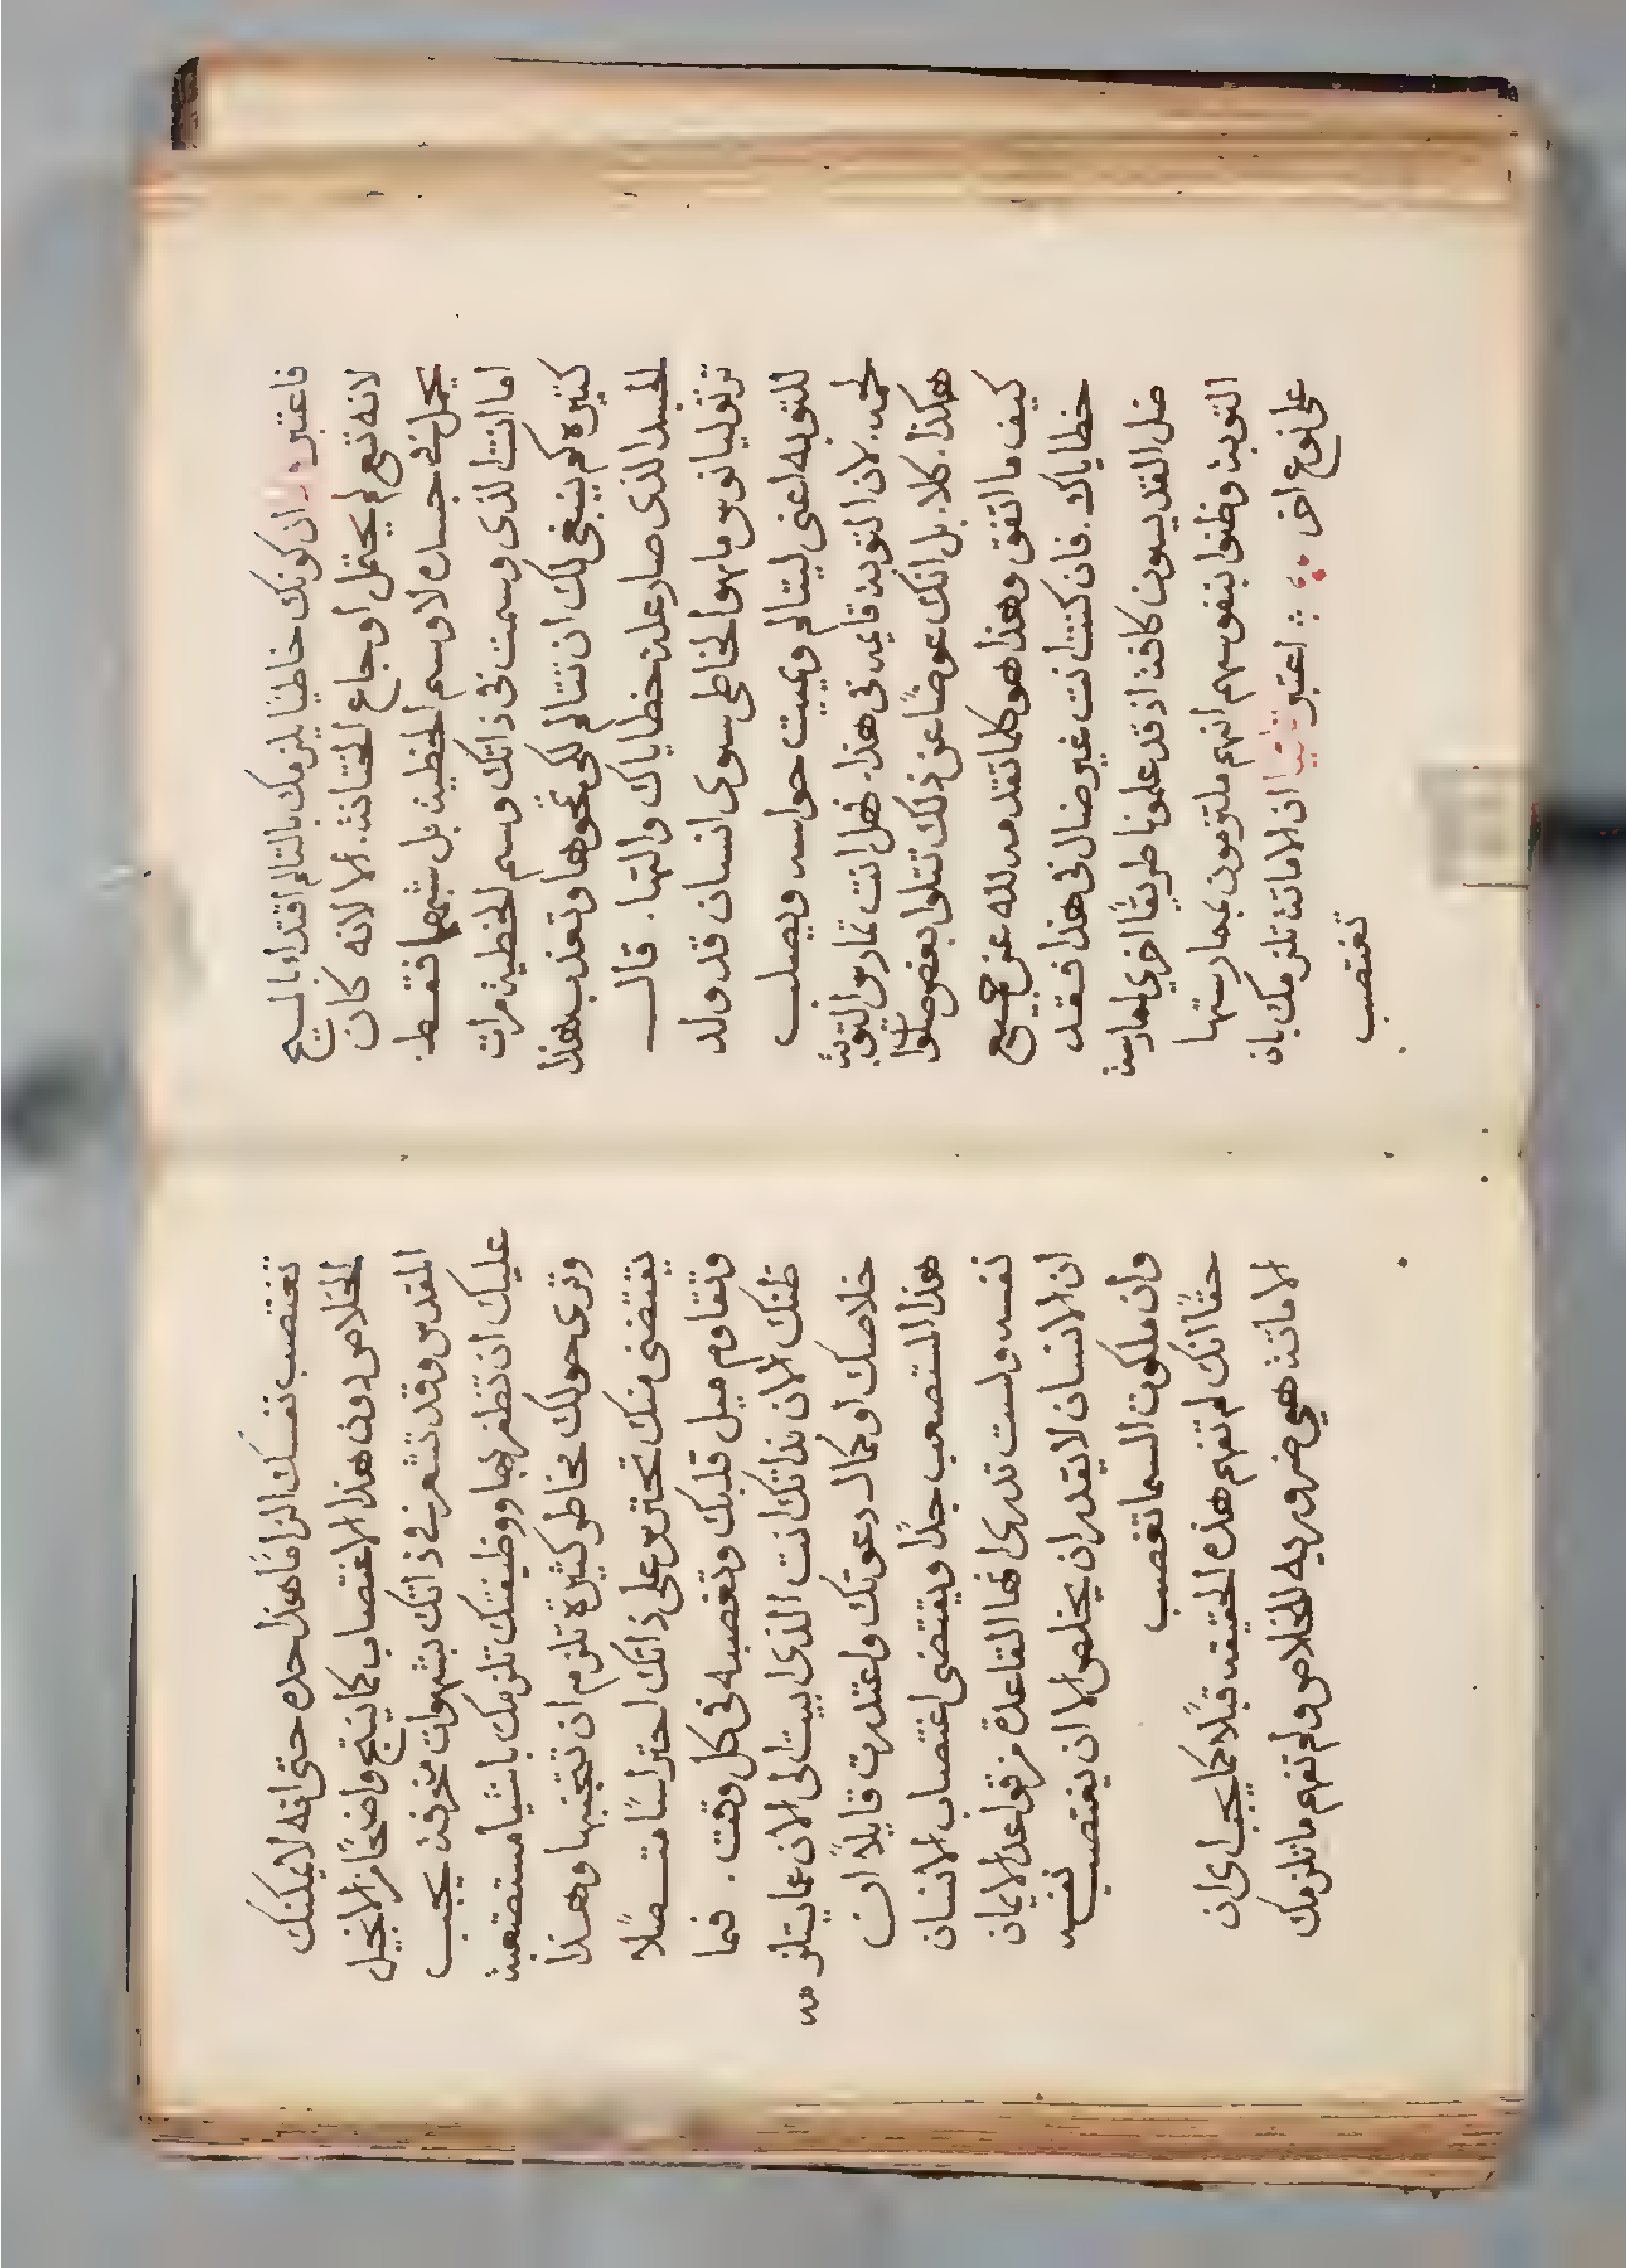 فاعتبر ان كونك خاطيًا يلزمك بالتالم اقتداء بالمسيح
لانه تعالى لم يحتمل اوجاع الختانة. الا لانه كان
يحمل في جسده لا وسم الخطية بل شبهها فقط.
اما انت الذى وسمت فى ذاتك وسم الخطية مرات
كثيرة كم ينبغى لك ان تتالم لكى تمحوها وتعذب هذا
الجسد الذى صار علة خطاياك والتها. قال
ترتوليانوس ما هو الخاطى سوى انسان قد ولد
للتوبه اعنى ليتالم ويميت حواسه ويصلب
لحمه. لان التوبة قايمه فى هذا. فهل انت تمارس التوبة
هكذا. كلا. بل انك عوضًا عن ذلك تتلوا بعض صلوات
كيف ما اتفق وهذا هو كلما تقدمه لله عن جميع
خطاياك. فان كنت انت غير ضال فى هذا فقد
ضل القديسون كافة اذ قد علمونا طريقًا اخرى لممارسة
التوبة وظنوا بنفوسهم انهم ملتزمون بممارستها
على نوع اخر اعتبر ثانيا ان الامانة تلزمك بان
تغتصب
تغتصب نفسك الزامًا هذا حده حتى انه لا يمكنك
الخلاص دون هذا الاغتصاب كما ينتج واضحًا من الانجيل
المقدس وقد تشعر فى ذاتك بشهوات منحرفة يجب
عليك ان تظفر بها ووظيفتك تلزمك باشيا مستصعبة
وترى حولك مخاطر كثيرة تلزم ان تتجنبها وهذا
يقتضى منك تحترس على ذاتك احتراسًا متصلًا
وتقاوم ميل قلبك وتغصبه فى كل وقت. فما
ظنك الان بذاتك انت الذى ابيت الى الان عما يستلزمه
خلاصك او كمال دعوتك واعتذرت قايلًا ان
هذا المستصعب جدًا ويقتضى اغتصاب الانسان
نفسه ولست تدرى انها القاعدة من قواعد الايمان
ان الانسان لا يقدر ان يخلص الا ان يغتصب نفسه
وان ملكوت السما تغصب
حقًا انك لم تفهم هذه الحقيقه قبلًا كما يجب اى ان
الامانة هى ضروريه للخلاص ولم تفهم ما تلزمك